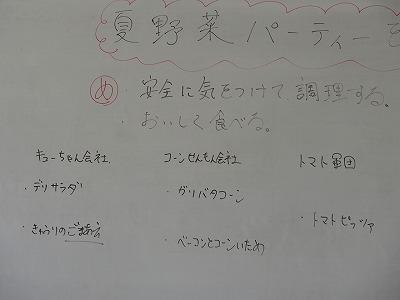 夏野菜パーティーを
め・安全に気をつけて調理する。
・おいしく食べる。
キューちゃん会社 コーンせんもん会社 トマト軍団
・デリサラダ ・ガリバタコーン ・トマトピッツァ
・きゅうりのごまあえ ・ベーコンとコーンいため